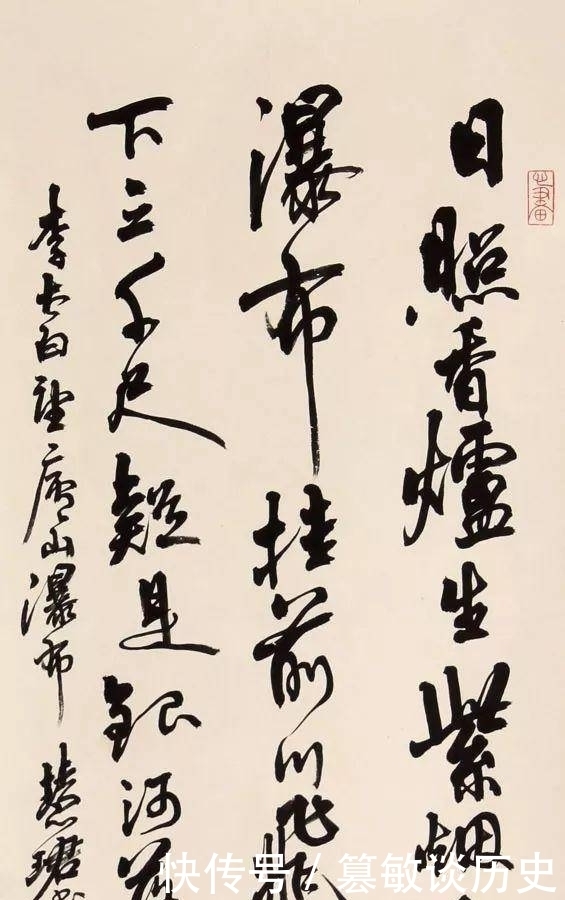 日照香爐生紫烟
瀑布挂前川飛流
下三千尺疑是銀河落
李太白望廬山瀑布 慧珺書
快传号 / 篡敏谈历史